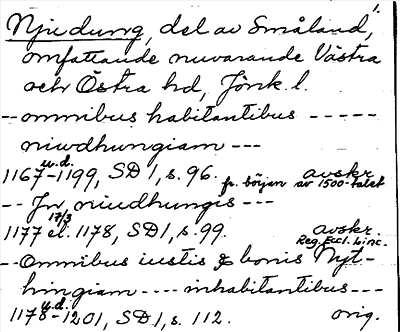 1.
Njudung, del av Småland,
omfattande nuvarande Västra
och Östra hd, Jönk. l.
-- omnibus habitantibus -----
niudhungiam ---
u.d.
1167-1199, SD 1, s. 96. avskr.
fr. början av 1500-talet
-- Jn niudhungis ---
17/3
1177 el. 1178, SD 1, s. 99. avskr.
Reg. Eccl. Linc.
-- Omnibus iustis & bonis Nyt-
hingiam ---- inhabitantibus ---
u.d.
1178-1201, SD 1, s. 112. orig.